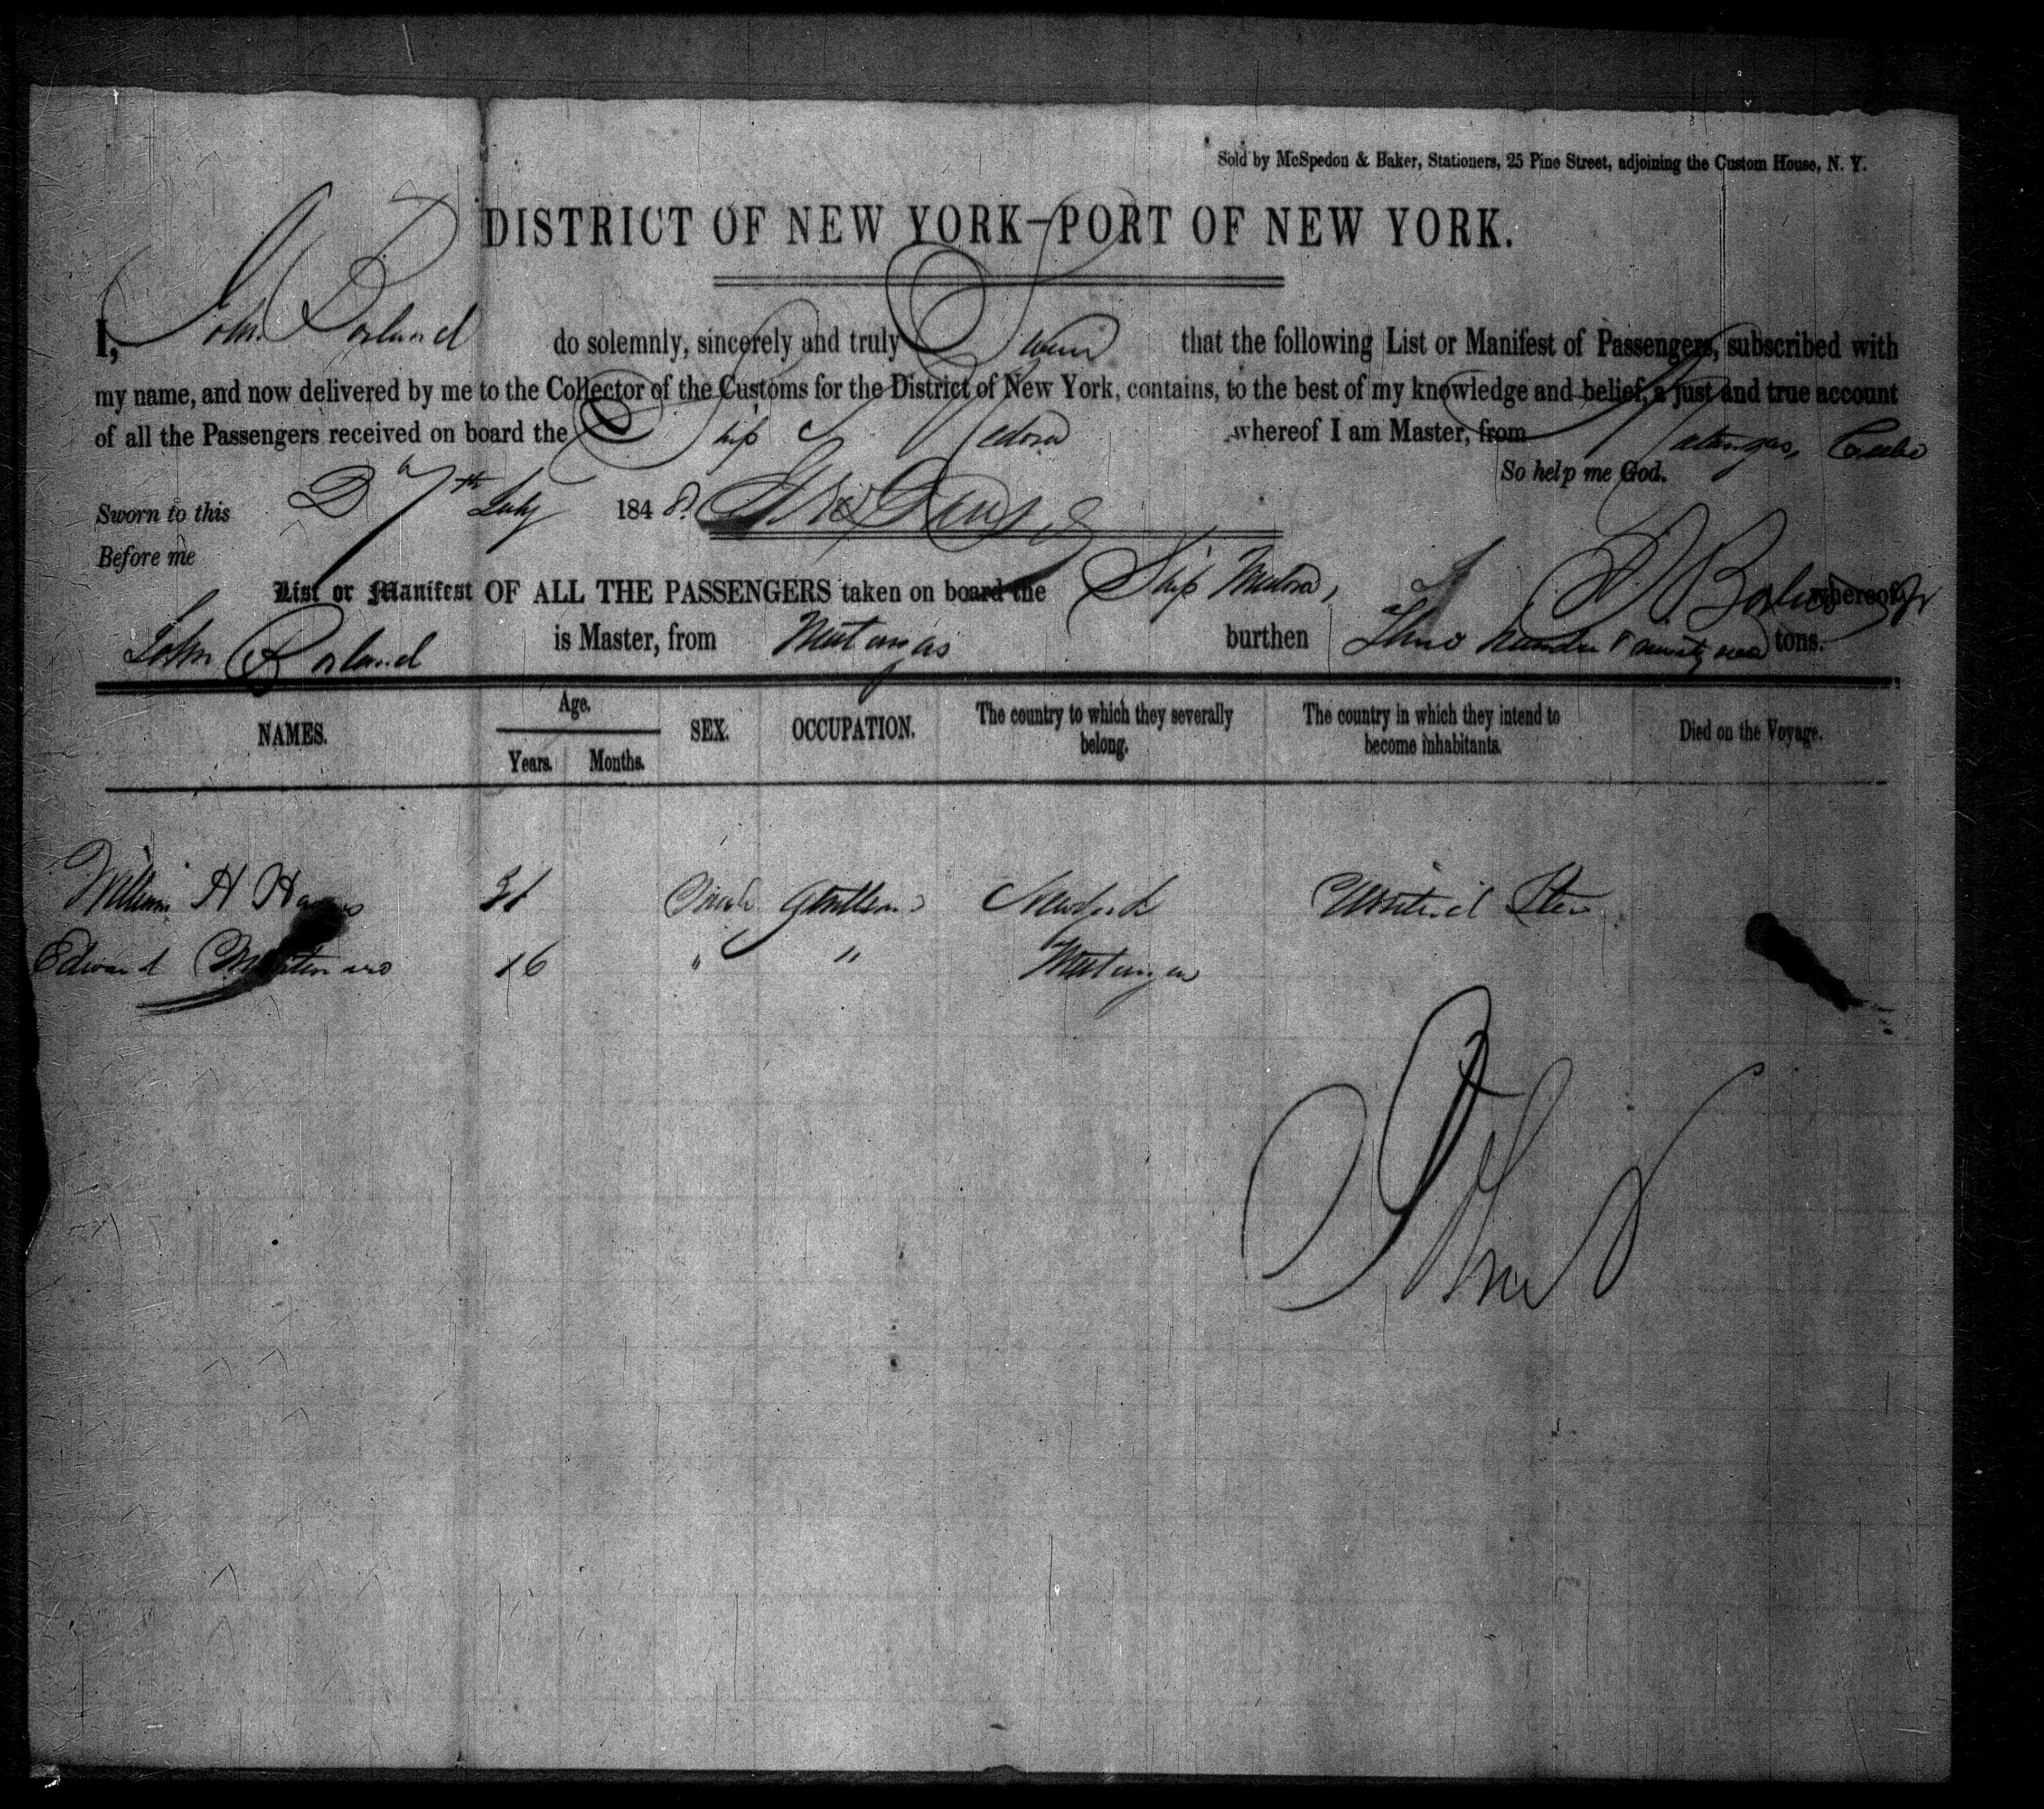 Sold by McSpedon & Baker, Stationers, 25 Pine Street, adjoining the Custom House, N. Y.
DISTRICT OF NEW YORK—PORT OF NEW YORK.
I, John Borland do solemnly, sincerely and truly Swear that the following List or Manifest of Passengers, subscribed with
my name, and now delivered by me to the Collector of the Customs for the District of New York, contains, to the best of my knowledge and belief, a just and true account
of all the Passengers received on board the Ship Medora whereof I am Master, from Matanzas, Cuba
So help me God.
Sworn to this 7th July 1848
Before me
List or Manifest OF ALL THE PASSENGERS taken on board the Ship Medora, whereof
John Borland is Master, from Matanzas burthen Three hundred & tons.
NAMES. Age. SEX. OCCUPATION. The country to which they severally belong. The country in which they intend to become inhabitants. Died on the Voyage.
Years. Months.
William H 31 Male Gentleman New York United
Edward 16 " " Matanzas